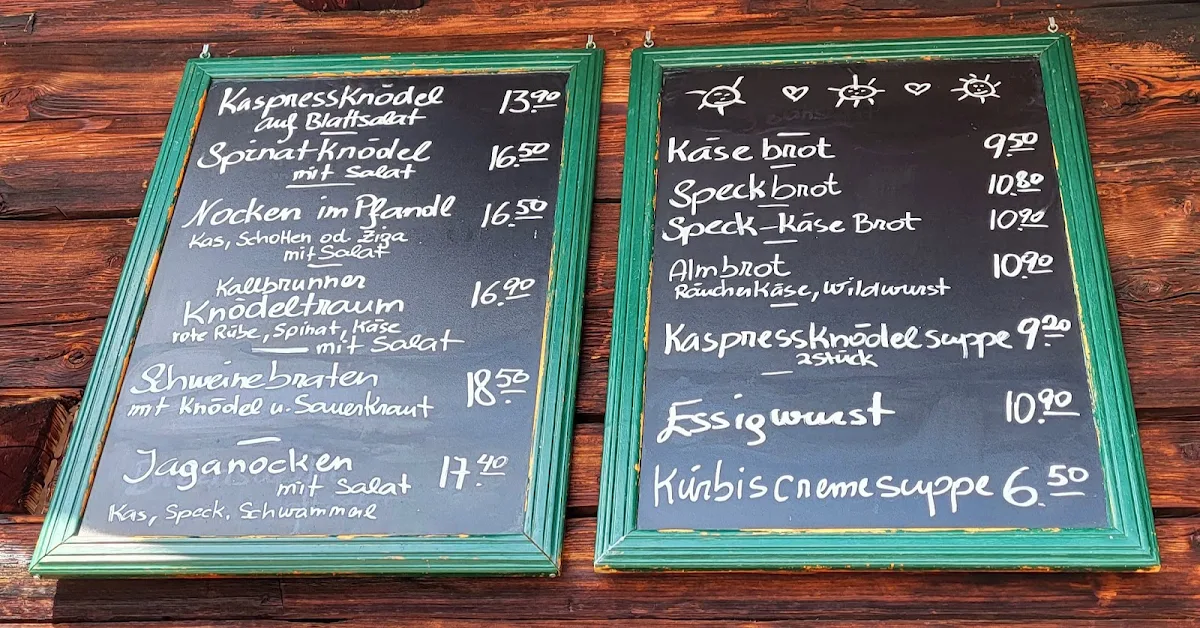 Kaspressknödel 13.90
auf Blattsalat
Spinatknödel 16.50
mit Salat
Nocken im Pfandl 16.50
Kas, Schotten od. Ziga
mit Salat
Kallbrunner
Knödeltraum 16.90
rote Rübe, Spinat, Käse
mit Salat
Schweinebraten 18.50
mit Knödel u. Sauerkraut
Jaganocken 17.40
mit Salat
Kas, Speck, Schwammerl
Käsebrot 9.50
Speckbrot 10.80
Speck-Käse Brot 10.90
Almbrot 10.90
Räucherkäse, Wildwurst
Kaspressknödelsuppe 9.20
2Stück
Essigwurst 10.90
Kürbiscremesuppe 6.50